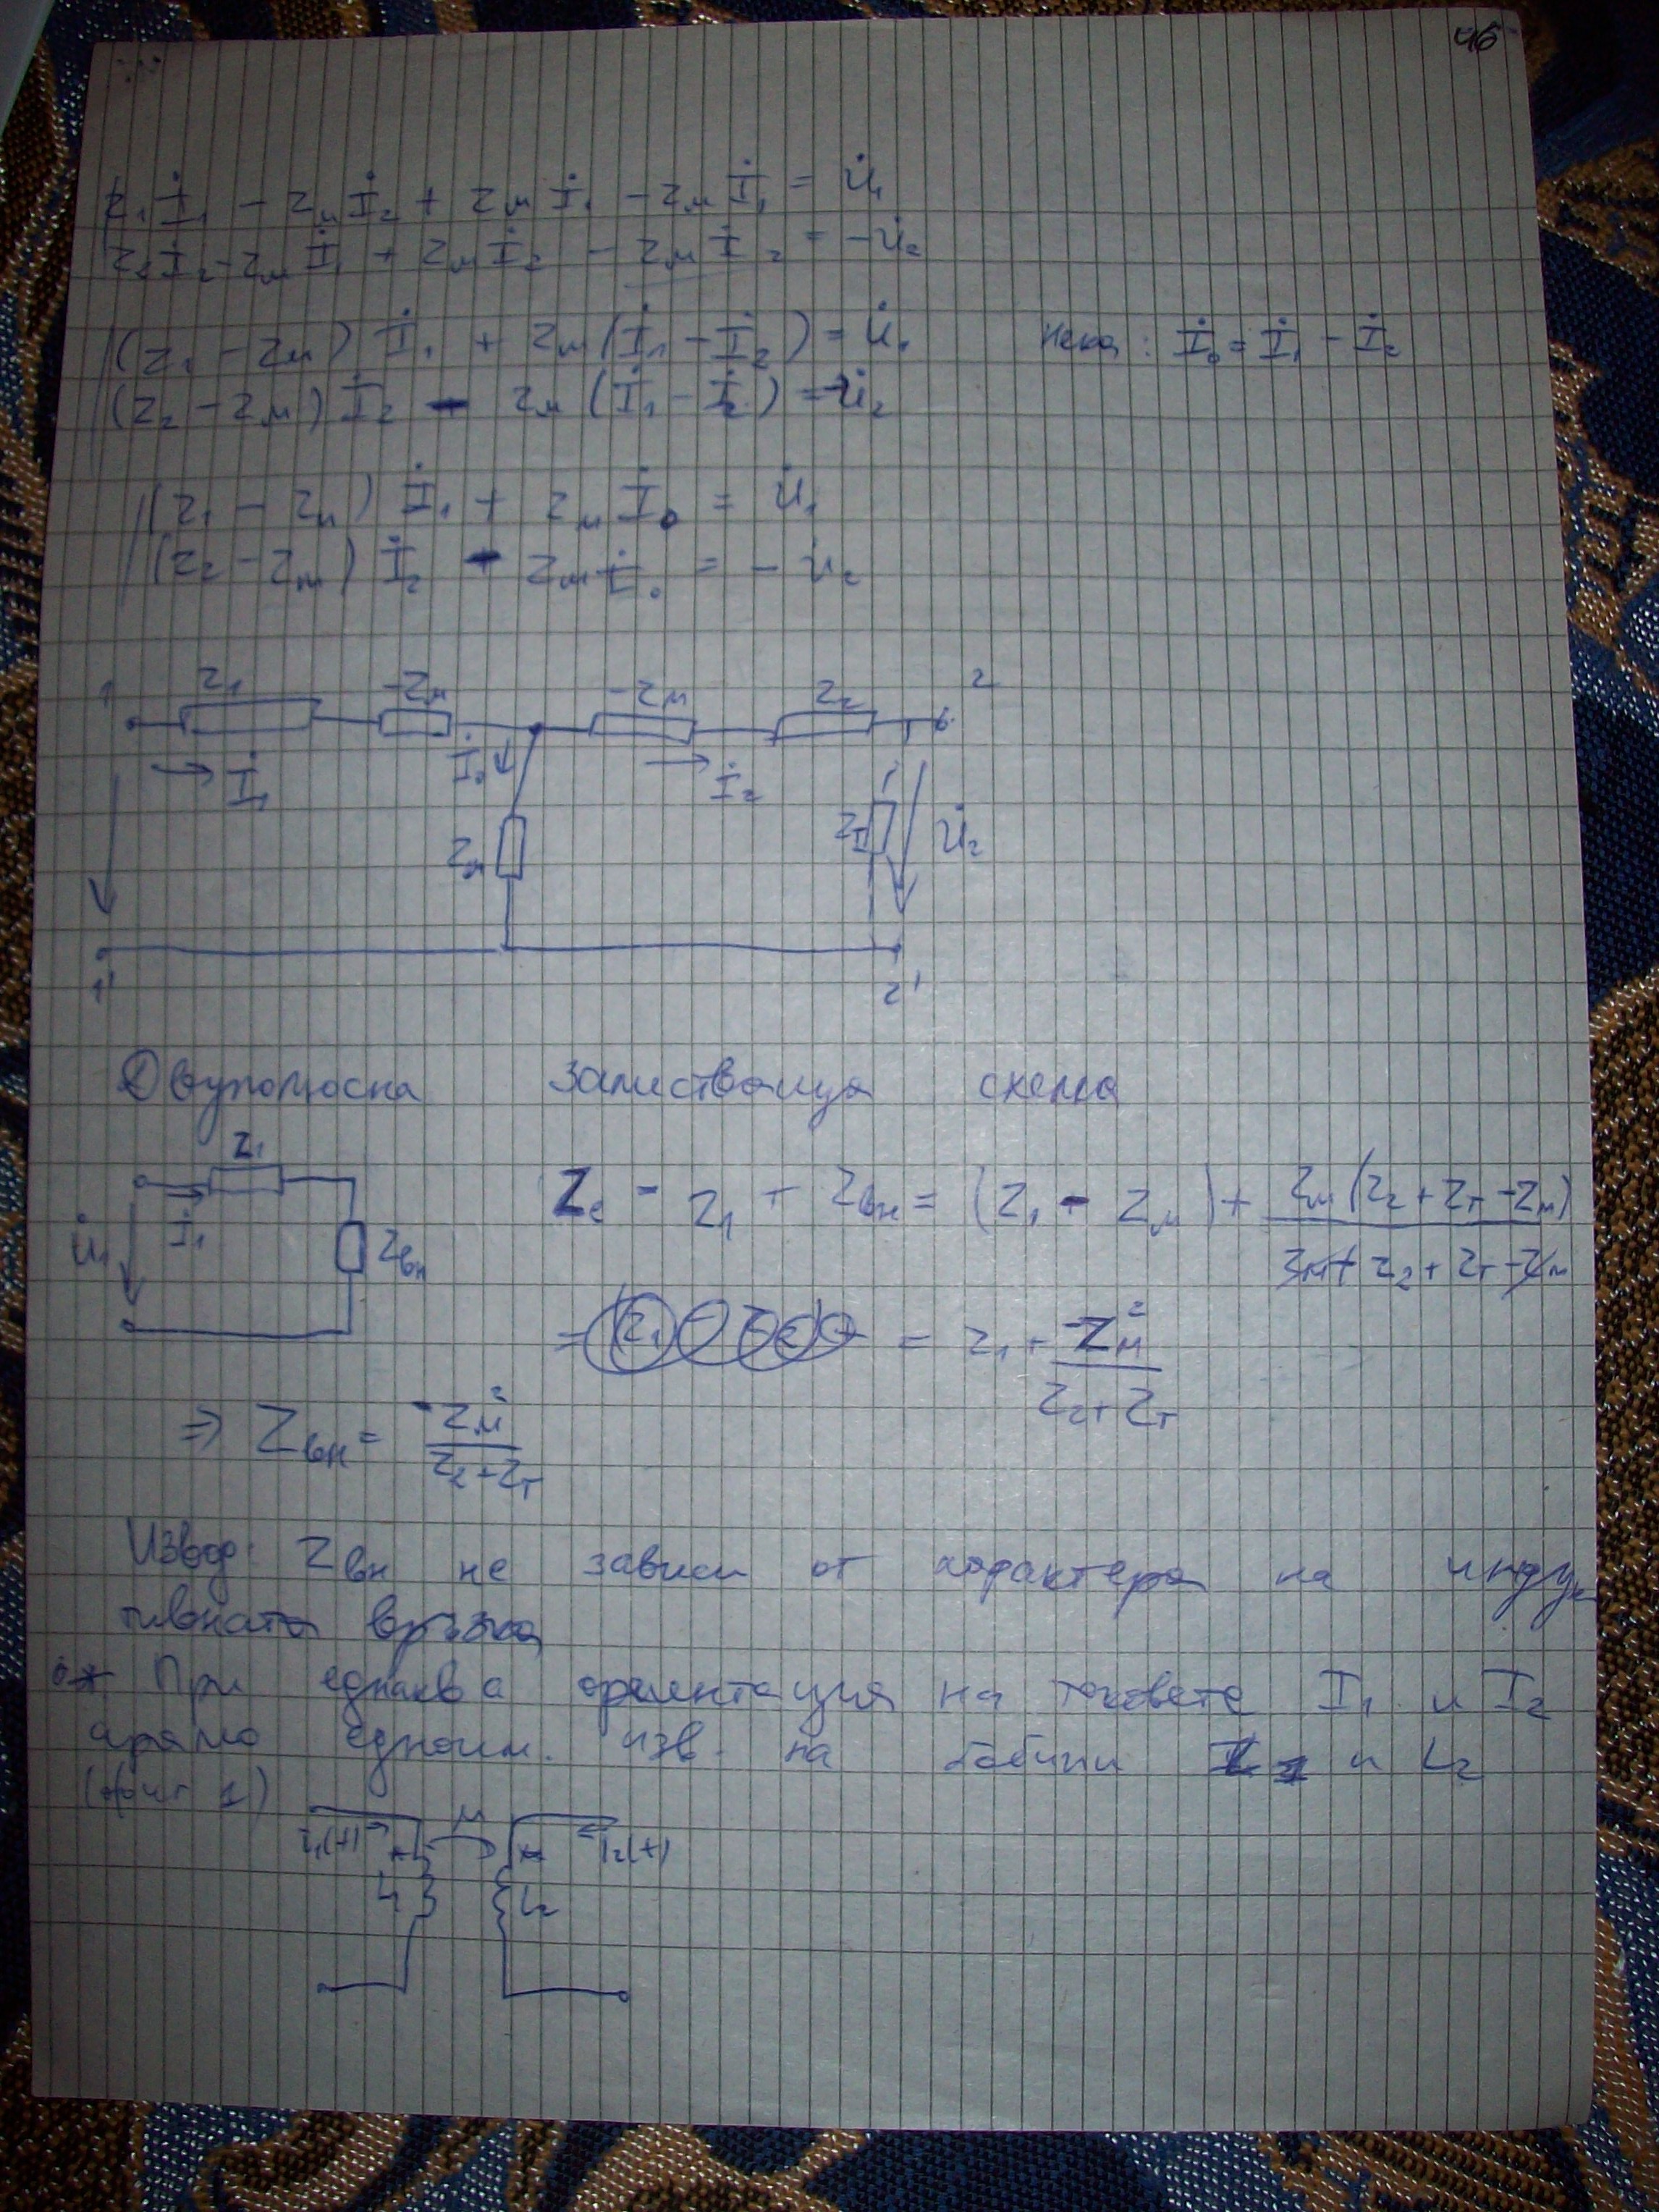 46
Z₁İ₁ - Zмİ₂ + Zмİ₁ - Zмİ₁ = U̇₁
Z₂İ₂ - Zмİ₁ + Zмİ₂ - Zмİ₂ = -U̇₂
(Z₁ - Zм) İ₁ + Zм(İ₁ - İ₂) = U̇₁ Нека: İ₀ = İ₁ - İ₂
(Z₂ - Zм) İ₂ - Zм (İ₁ - İ₂) = -U̇₂
(Z₁ - Zм) İ₁ + Zм İ₀ = U̇₁
(Z₂ - Zм) İ₂ - Zм İ₀ = - U̇₂
1 Z₁ -Zм -Zм Z₂ 2
İ₁ İ₀ İ₂
Zм Zт U̇₂
1' 2'
Двуполюсна заместваща схема
Z₁
U̇₁ İ₁ Zвн
Zе = Z₁ + Zвн = (Z₁ - Zм) + Zм(Z₂ + Zт - Zм) / Zм + Z₂ + Zт - Zм
= = Z₁ + -Zм² / Z₂ + Zт
⇒ Zвн = -Zм² / Z₂ + Zт
Извод: Zвн не зависи от характера на индук
тивната връзка
При еднаква ориентация на токовете I₁ и I₂
прямо едноим. изв. на бобини L₁ и L₂
(фиг 1)
i₁(t) * M * i₂(t)
L₁ L₂